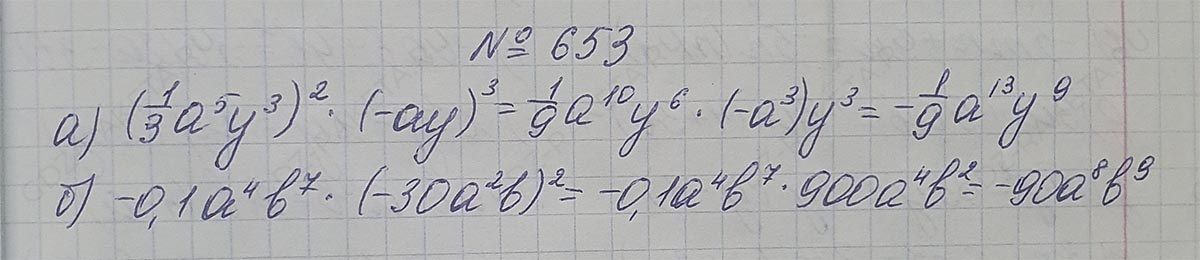 № 653
а) (1/3 a⁵y³)² · (-ay)³ = 1/9 a¹⁰y⁶ · (-a³)y³ = -1/9 a¹³y⁹
б) -0,1a⁴b⁷ · (-30a²b)² = -0,1a⁴b⁷ · 900a⁴b² = -90a⁸b⁹